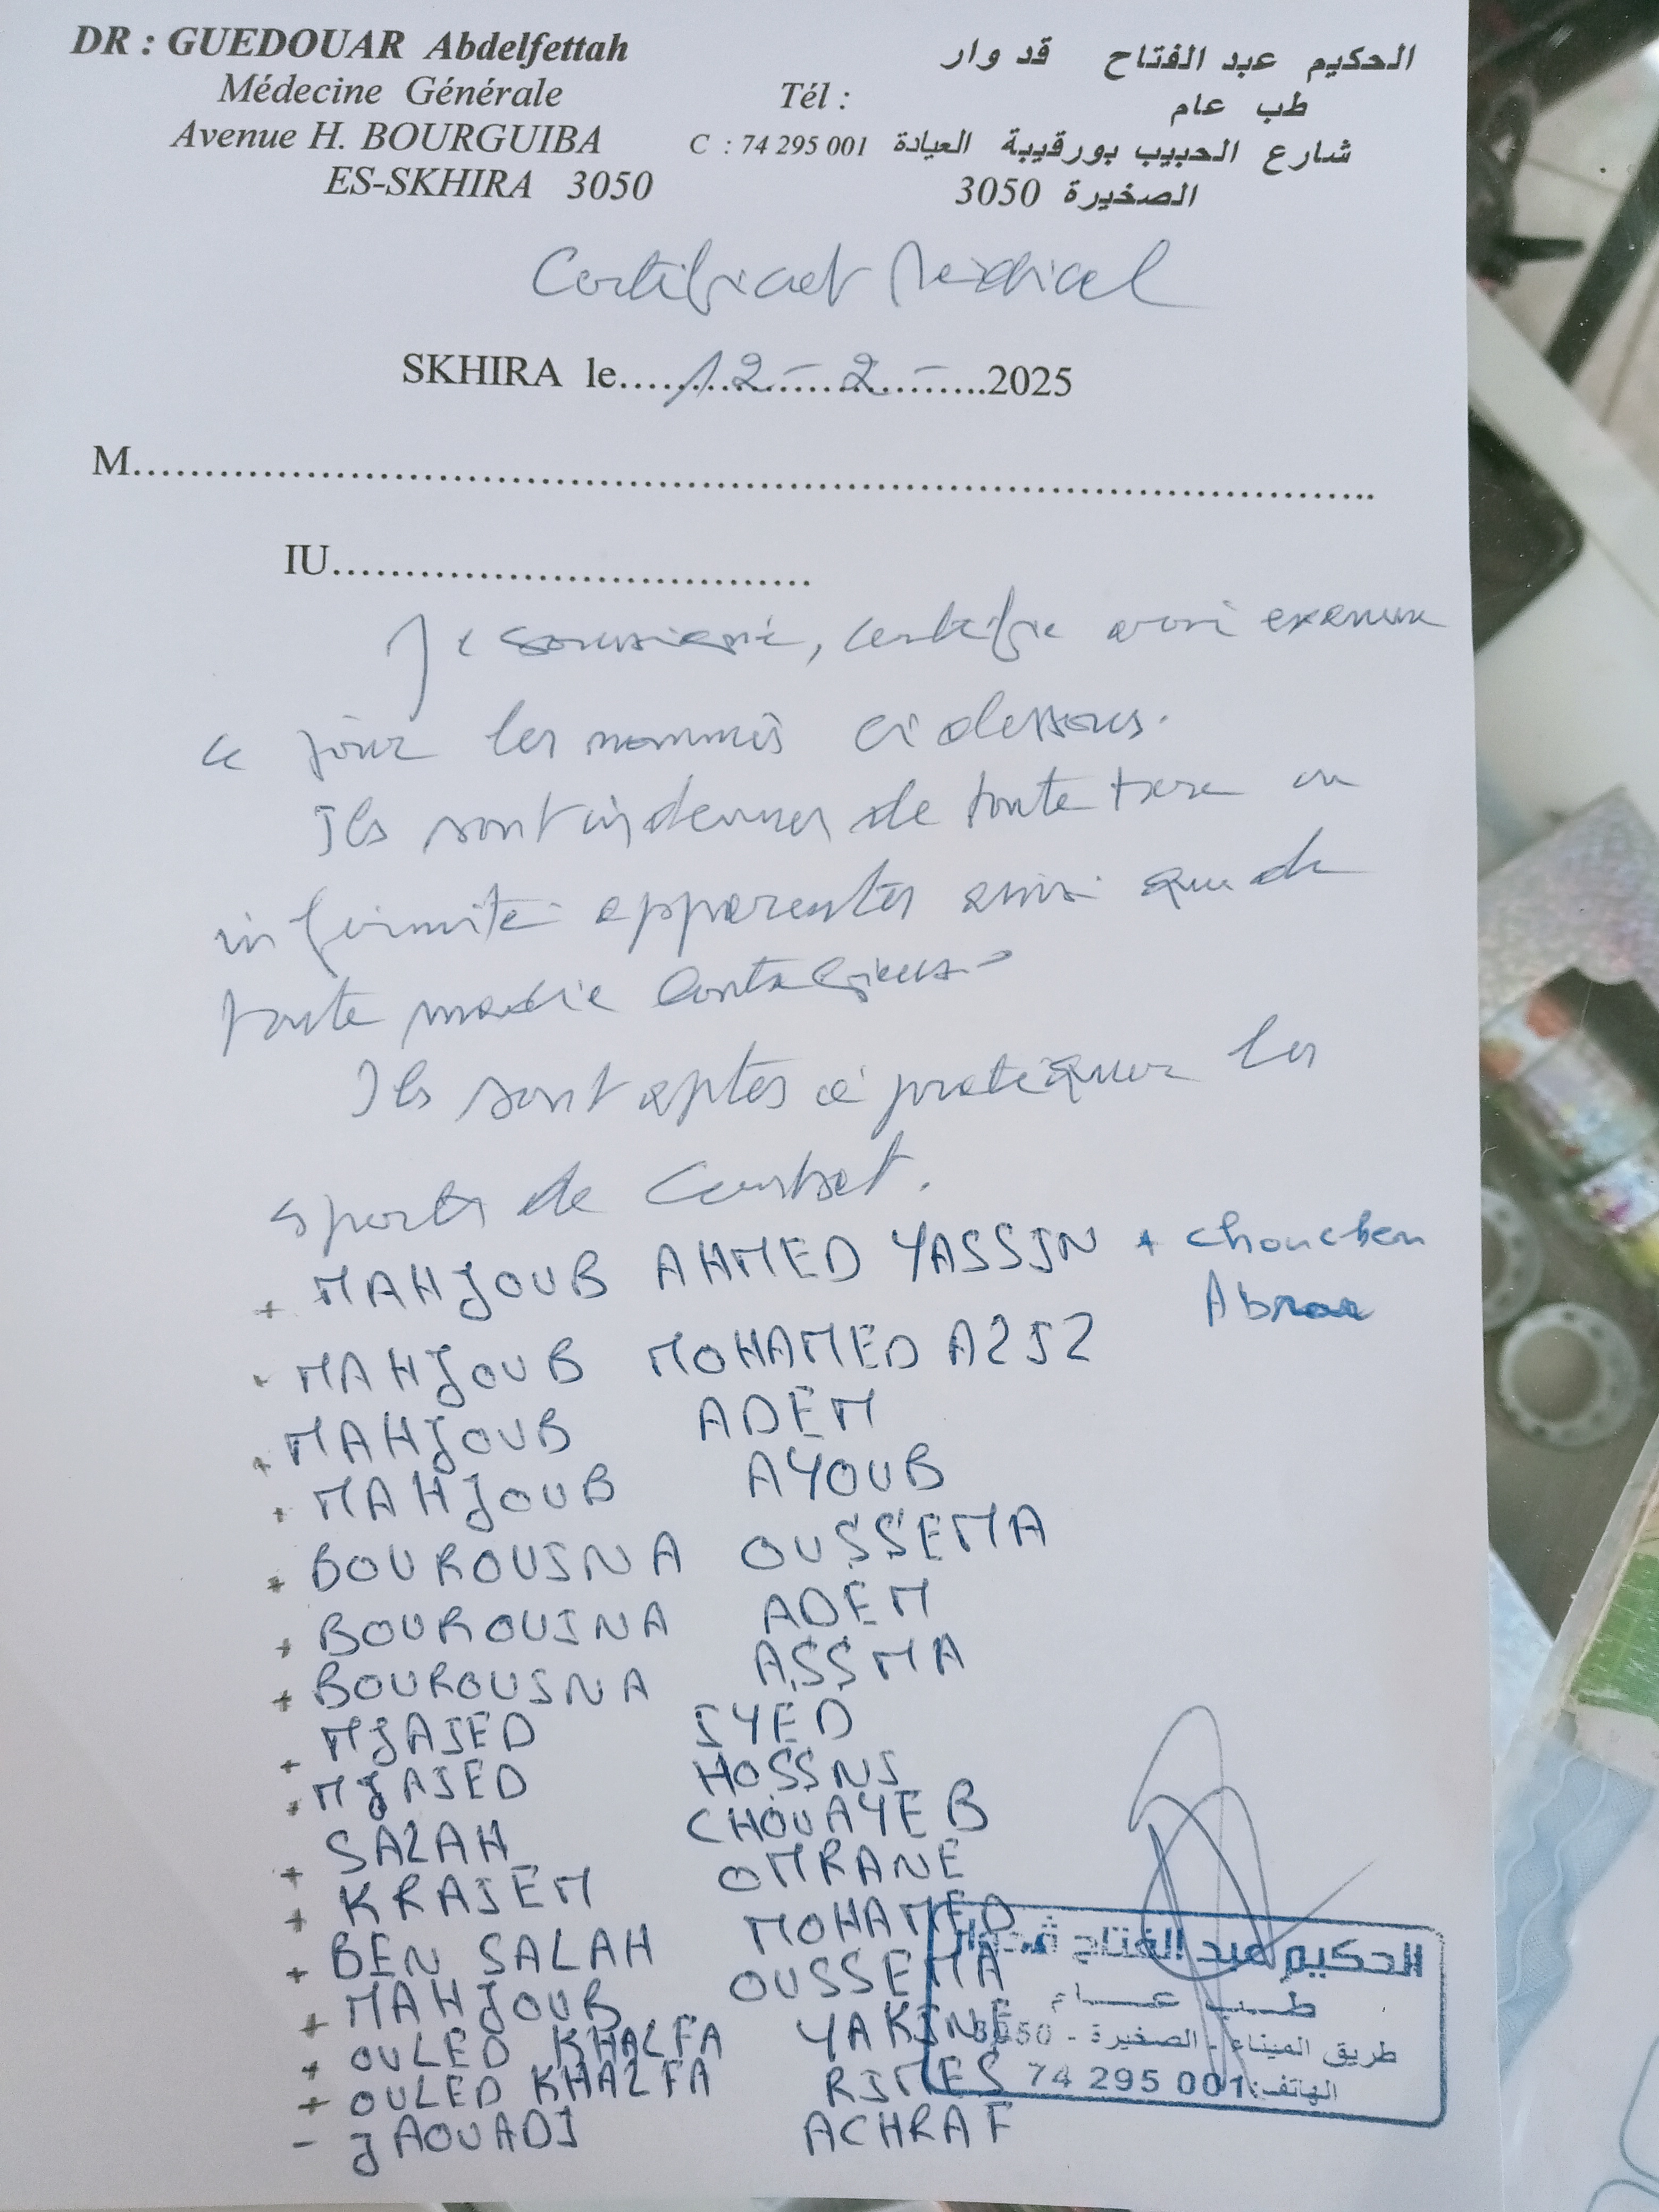 DR : GUEDOUAR Abdelfettah
Médecine Générale
Avenue H. BOURGUIBA
ES-SKHIRA 3050
الحكيم عبد الفتاح قدوار
طب عام
Tél :
شارع الحبيب بورقيبة العيادة C : 74 295 001
الصخيرة 3050
Certificat Médical
SKHIRA le 12-2- 2025
M
IU
Je soussigné, certifie avoir examiné
ce jour les nommés ci dessous.
Ils sont indemnes de toute tare ou
infirmité apparentes ainsi que de
toute maladie contagieuse
Ils sont aptes à pratiquer les
sports de Combat.
+ MAHJOUB AHMED YASSIN + Choucben
Abrar
MAHJOUB MOHAMED AZIZ
+ MAHJOUB ADEM
+ MAHJOUB AYOUB
+ BOUROUINA OUSSEMA
+ BOUROUINA ADEM
+ BOUROUINA ASSMA
+ MJAIED IYED
+ MJAIED HOSSNI
+ SALAH CHOUAYEB
+ KRAIEM OMRANE
+ BEN SALAH MOHAMED
+ MAHJOUB OUSSEMA
+ OULED KHALFA YAKINE
+ OULED KHALFA RIMES
- JAOUADI ACHRAF
الحكيم عبد الفتاح قدوار
طب عام
طريق الميناء - الصخيرة - 3050
الهاتف: 74 295 001